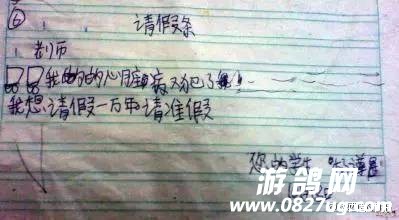 ⑥ 请假条
老师
我的的心脏病又犯了
我想请假一万年请准假
您的学生
游鸽网
www.0827dq.com